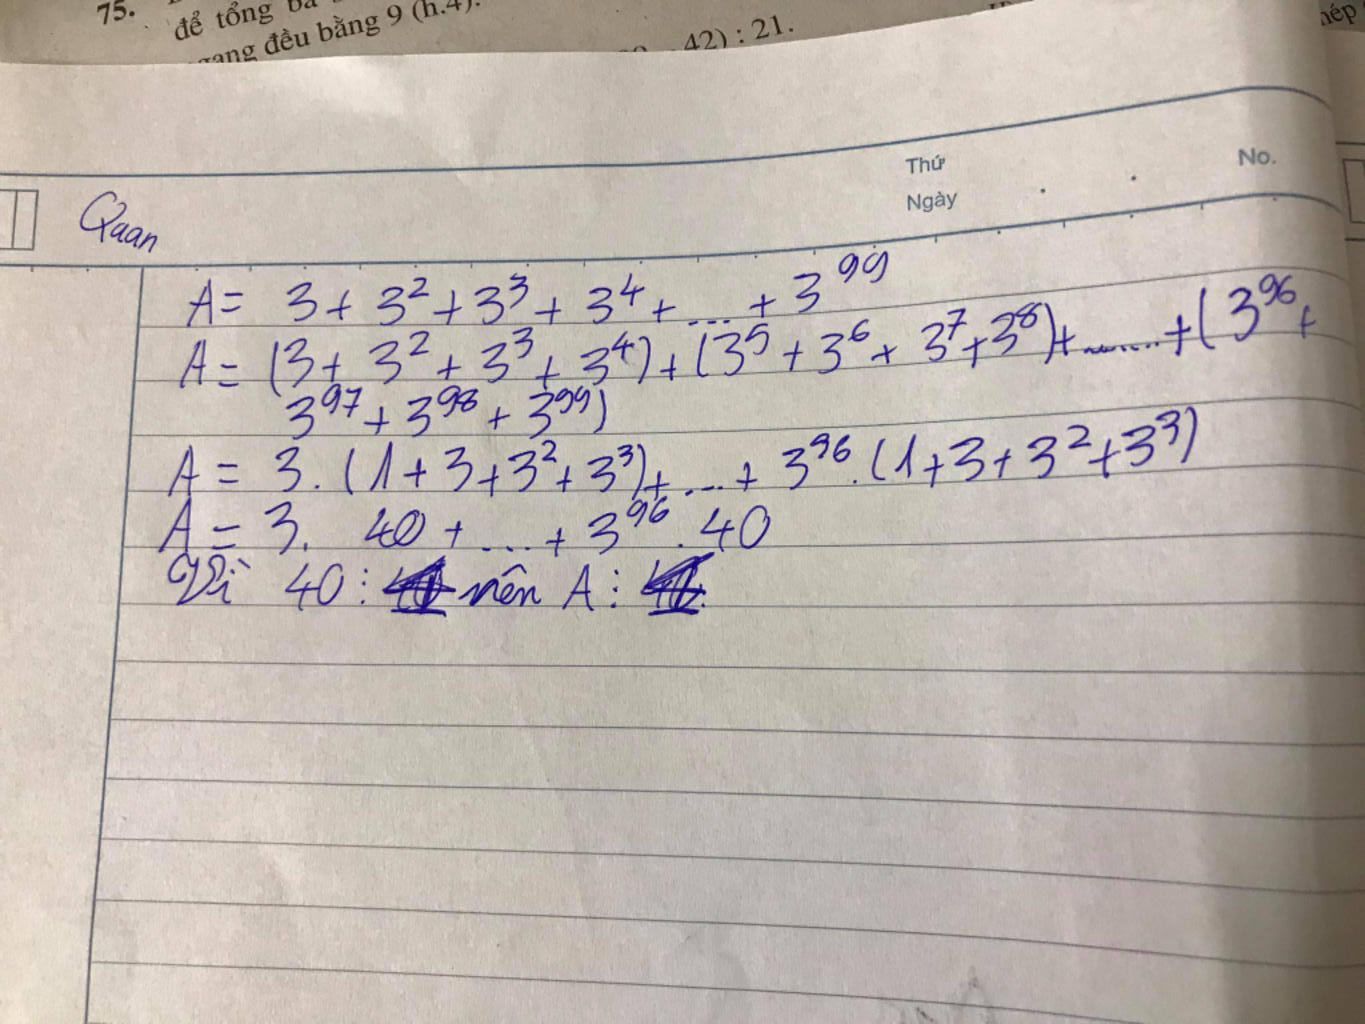 75.
để tổng ba
gang đều bằng 9 (h.4).
42) : 21.
Thứ
Ngày
No.
Quan
A = 3 + 3² + 3³ + 3⁴ + ... + 3⁹⁹
A = (3 + 3² + 3³ + 3⁴) + (3⁵ + 3⁶ + 3⁷ + 3⁸) + ........ + (3⁹⁶ +
3⁹⁷ + 3⁹⁸ + 3⁹⁹)
A = 3. (1 + 3 + 3² + 3³) + ... + 3⁹⁶. (1 + 3 + 3² + 3³)
A = 3. 40 + ... + 3⁹⁶. 40
Vì 40 ⋮ nên A ⋮